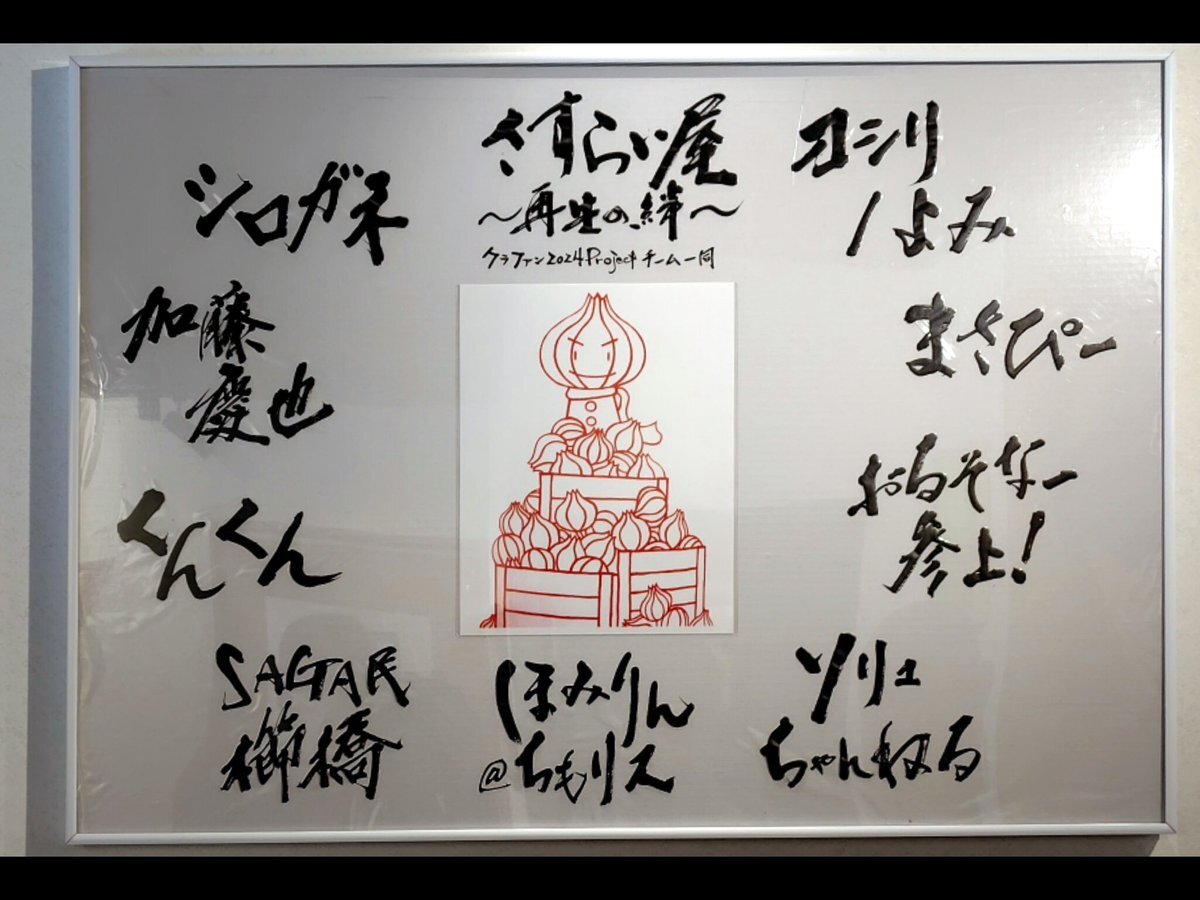 さすらい屋
～再生の絆～
クラファン2024Projectチーム一同
シロガネ
ヨシリ
よみ
加藤
慶也
まさぴー
くんくん
おるそなー
参上!
SAGA民
櫛橋
ほみりん
@ちもリス
ソリュ
ちゃんねる